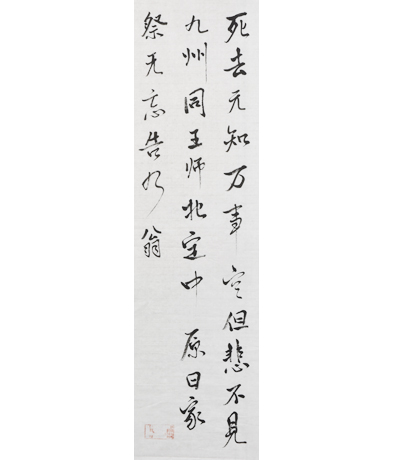 死去元知万事空但悲不见
九州同王师北定中原日家
祭无忘告乃翁